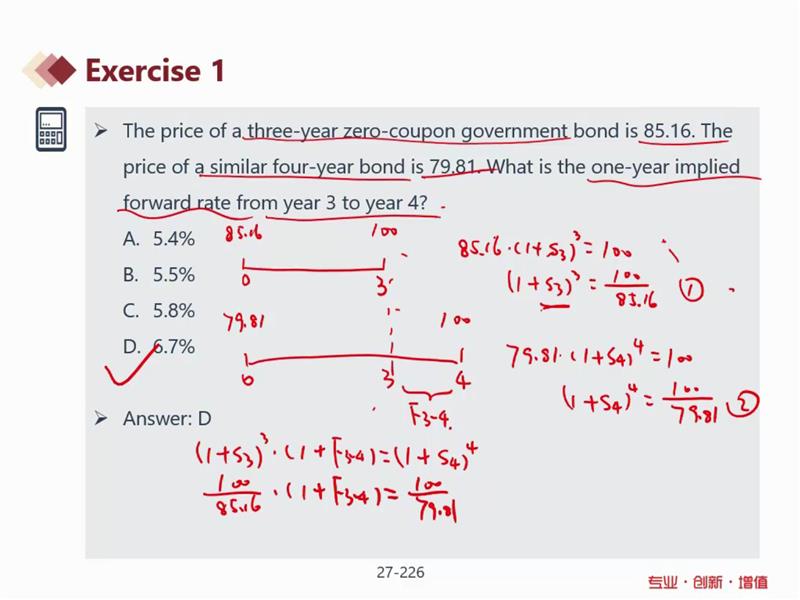 Exercise 1
The price of a three-year zero-coupon government bond is 85.16. The
price of a similar four-year bond is 79.81. What is the one-year implied
forward rate from year 3 to year 4?
A. 5.4%
B. 5.5%
C. 5.8%
D. 6.7%
85.16 100
0 3
79.81 100
0 3 4
F3-4
85.16·(1+S3)^3=100
(1+S3)^3=100/85.16 ①
79.81·(1+S4)^4=100
(1+S4)^4=100/79.81 ②
Answer: D
(1+S3)^3·(1+F3-4)=(1+S4)^4
100/85.16·(1+F3-4)=100/79.81
27-226
专业·创新·增值